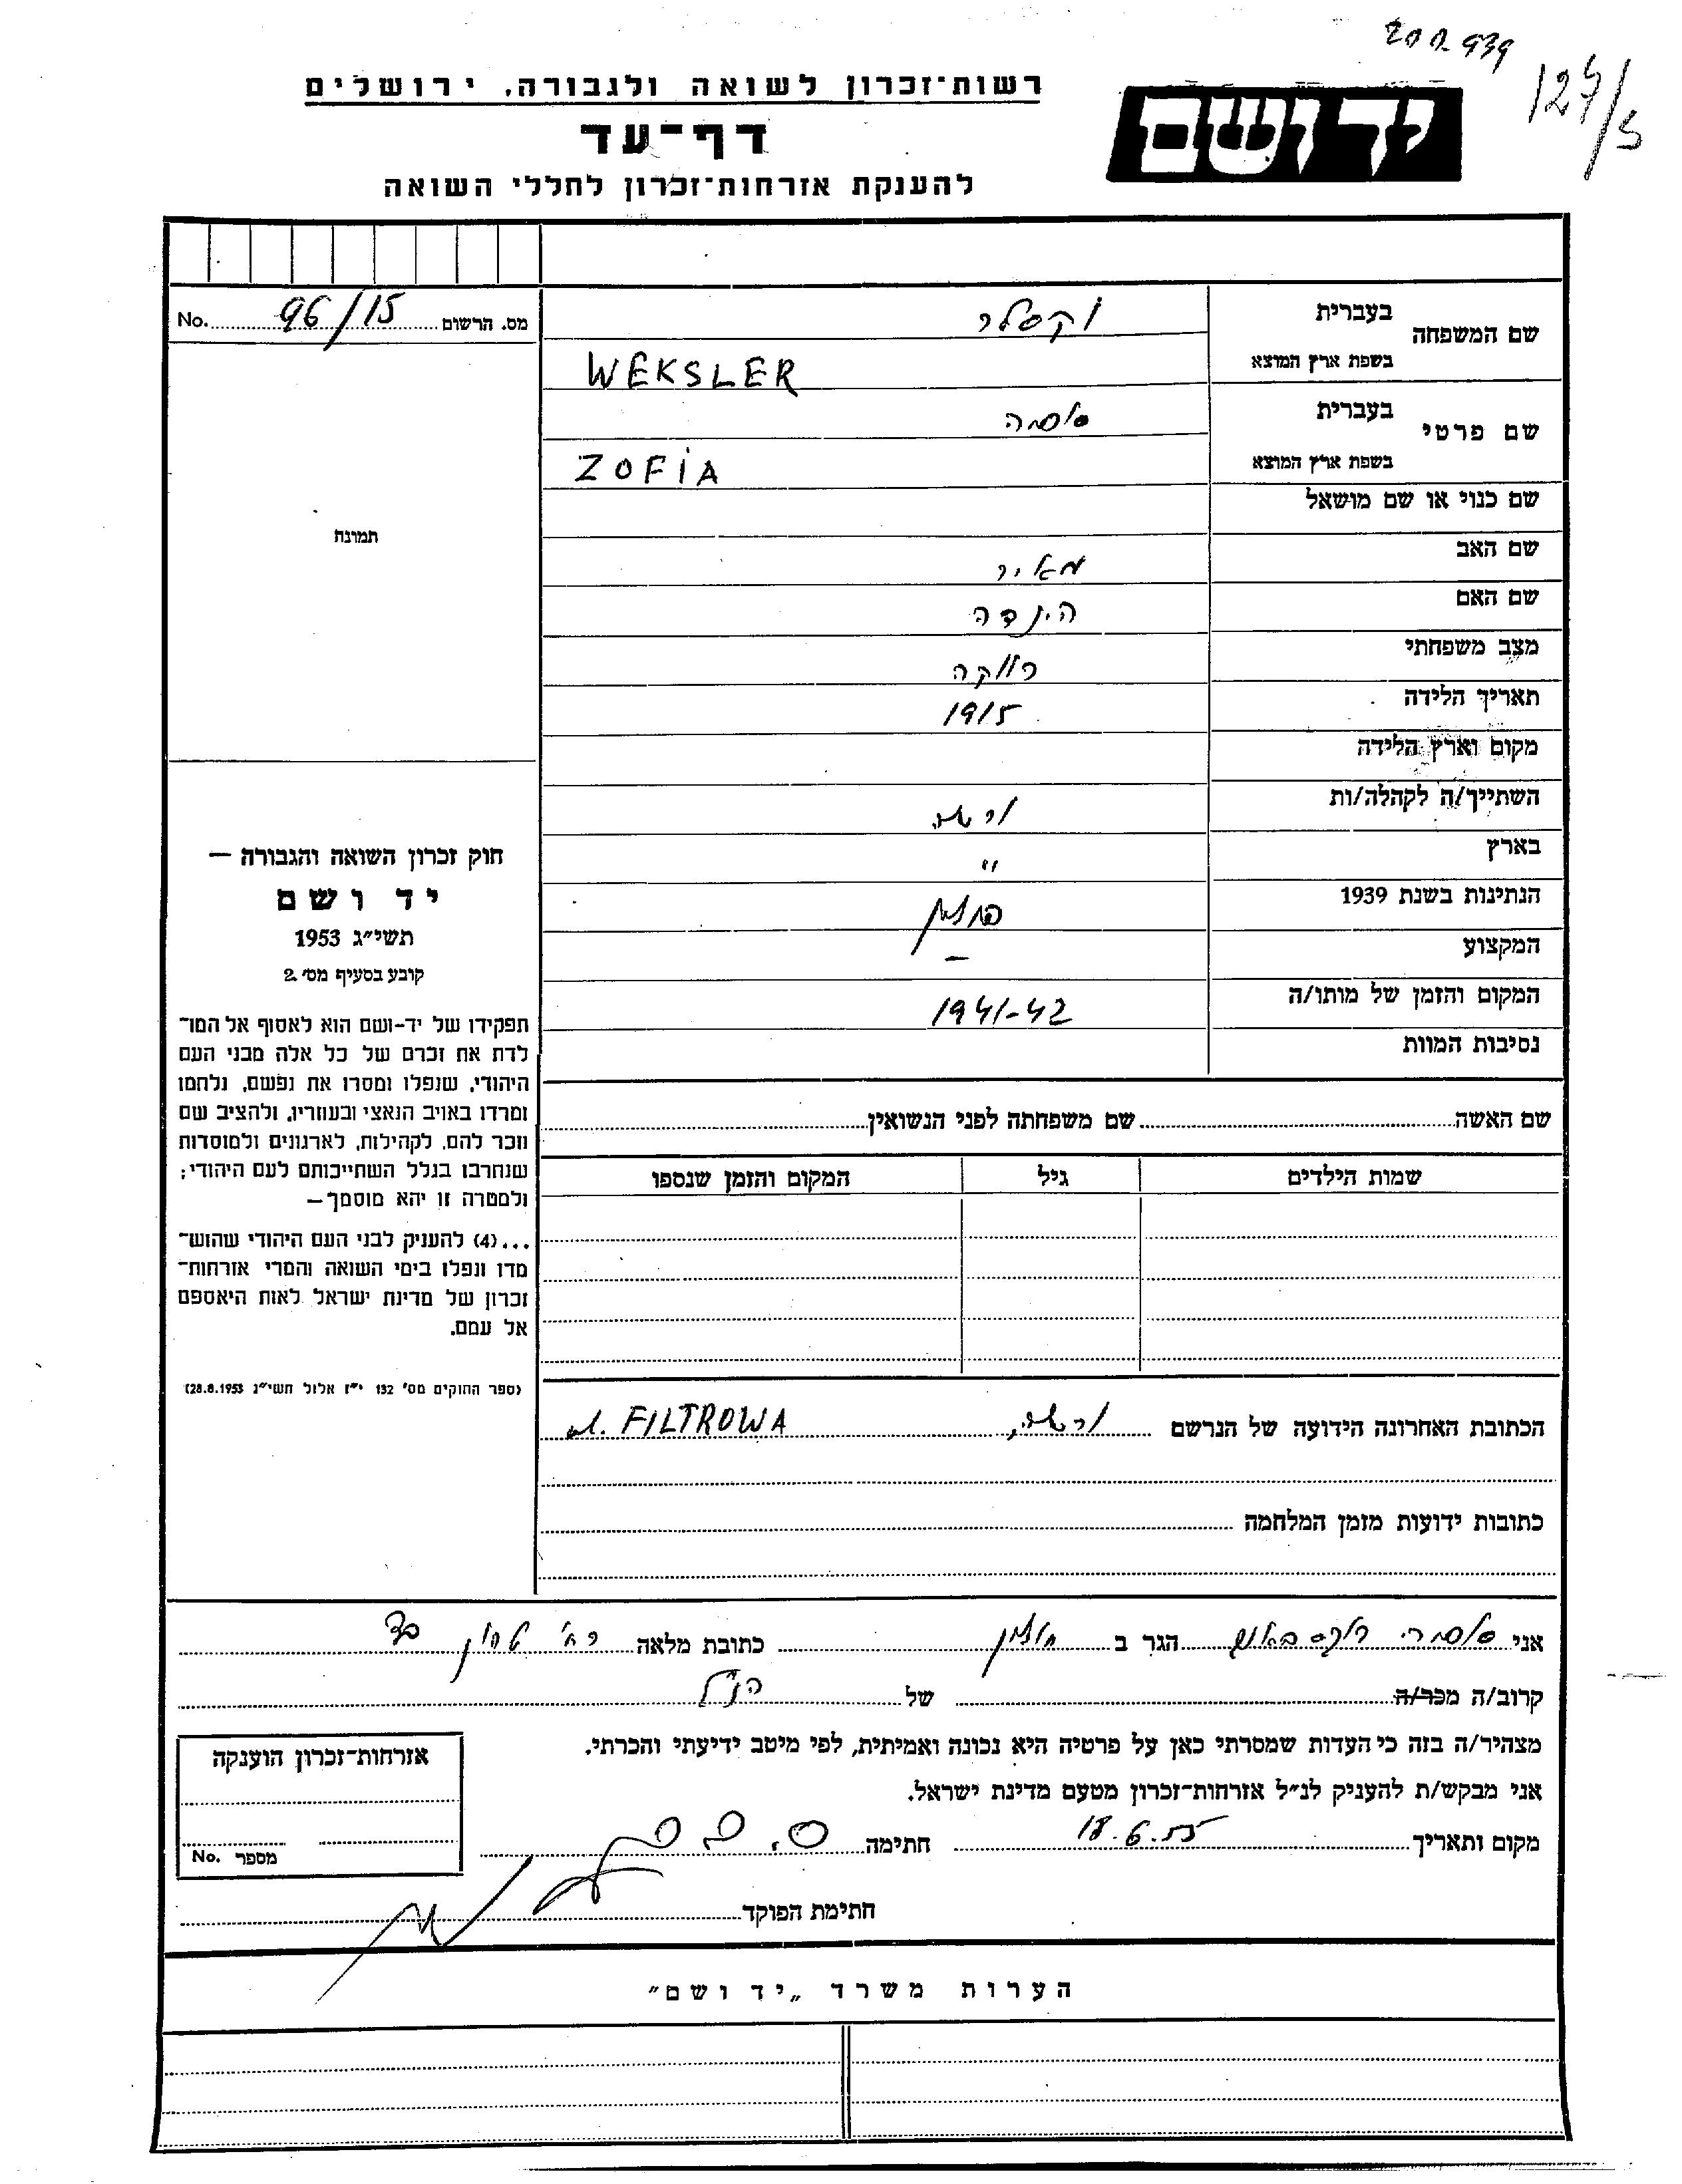 127/5
רשות־זכרון לשואה ולגבורה, ירושלים
ידושם
דף־עד
להענקת אזרחות־זכרון לחללי השואה
מס. הרשום 96/15 No.
שם המשפחה
בעברית וקסלר
בשפת ארץ המוצא WEKSLER
שם פרטי
בעברית
בשפת ארץ המוצא ZOFIA
שם כנוי או שם מושאל
תמונה
שם האב מאיר
שם האם הינדה
מצב משפחתי רווקה
תאריך הלידה 1915
מקום וארץ הלידה
השתייך/ה לקהלה/ות ורשה
בארץ "
הנתינות בשנת 1939
המקצוע –
המקום והזמן של מותו/ה 1941-42
נסיבות המוות
חוק זכרון השואה והגבורה –
יד ושם
תשי״ג 1953
קובע בסעיף מס׳ 2
תפקידו של יד-ושם הוא לאסוף אל המו־
לדת את זכרם של כל אלה מבני העם
היהודי, שנפלו ומסרו את נפשם, נלחמו
ומרדו באויב הנאצי ובעוזריו, ולהציב שם
וזכר להם, לקהילות, לארגונים ולמוסדות
שנחרבו בגלל השתייכותם לעם היהודי;
ולמטרה זו יהא מוסמך –
...(4) להעניק לבני העם היהודי שהוש־
מדו ונפלו בימי השואה והמרי אזרחות־
זכרון של מדינת ישראל לאות היאספם
אל עמם.
(ספר החוקים מס׳ 132 י״ז אלול תשי״ג 28.8.1953)
שם האשה שם משפחתה לפני הנשואין
שמות הילדים גיל המקום והזמן שנספו
הכתובת האחרונה הידועה של הנרשם ורשה, ul. FILTROWA
כתובות ידועות מזמן המלחמה
אני הגר ב חולון כתובת מלאה רח׳
קרוב/ה מכר/ה של הנ״ל
מצהיר/ה בזה כי העדות שמסרתי כאן על פרטיה היא נכונה ואמיתית, לפי מיטב ידיעתי והכרתי.
אני מבקש/ת להעניק לנ״ל אזרחות־זכרון מטעם מדינת ישראל.
מקום ותאריך 18.6.55 חתימה
חתימת הפוקד
אזרחות־זכרון הוענקה
מספר No.
הערות משרד „יד ושם״